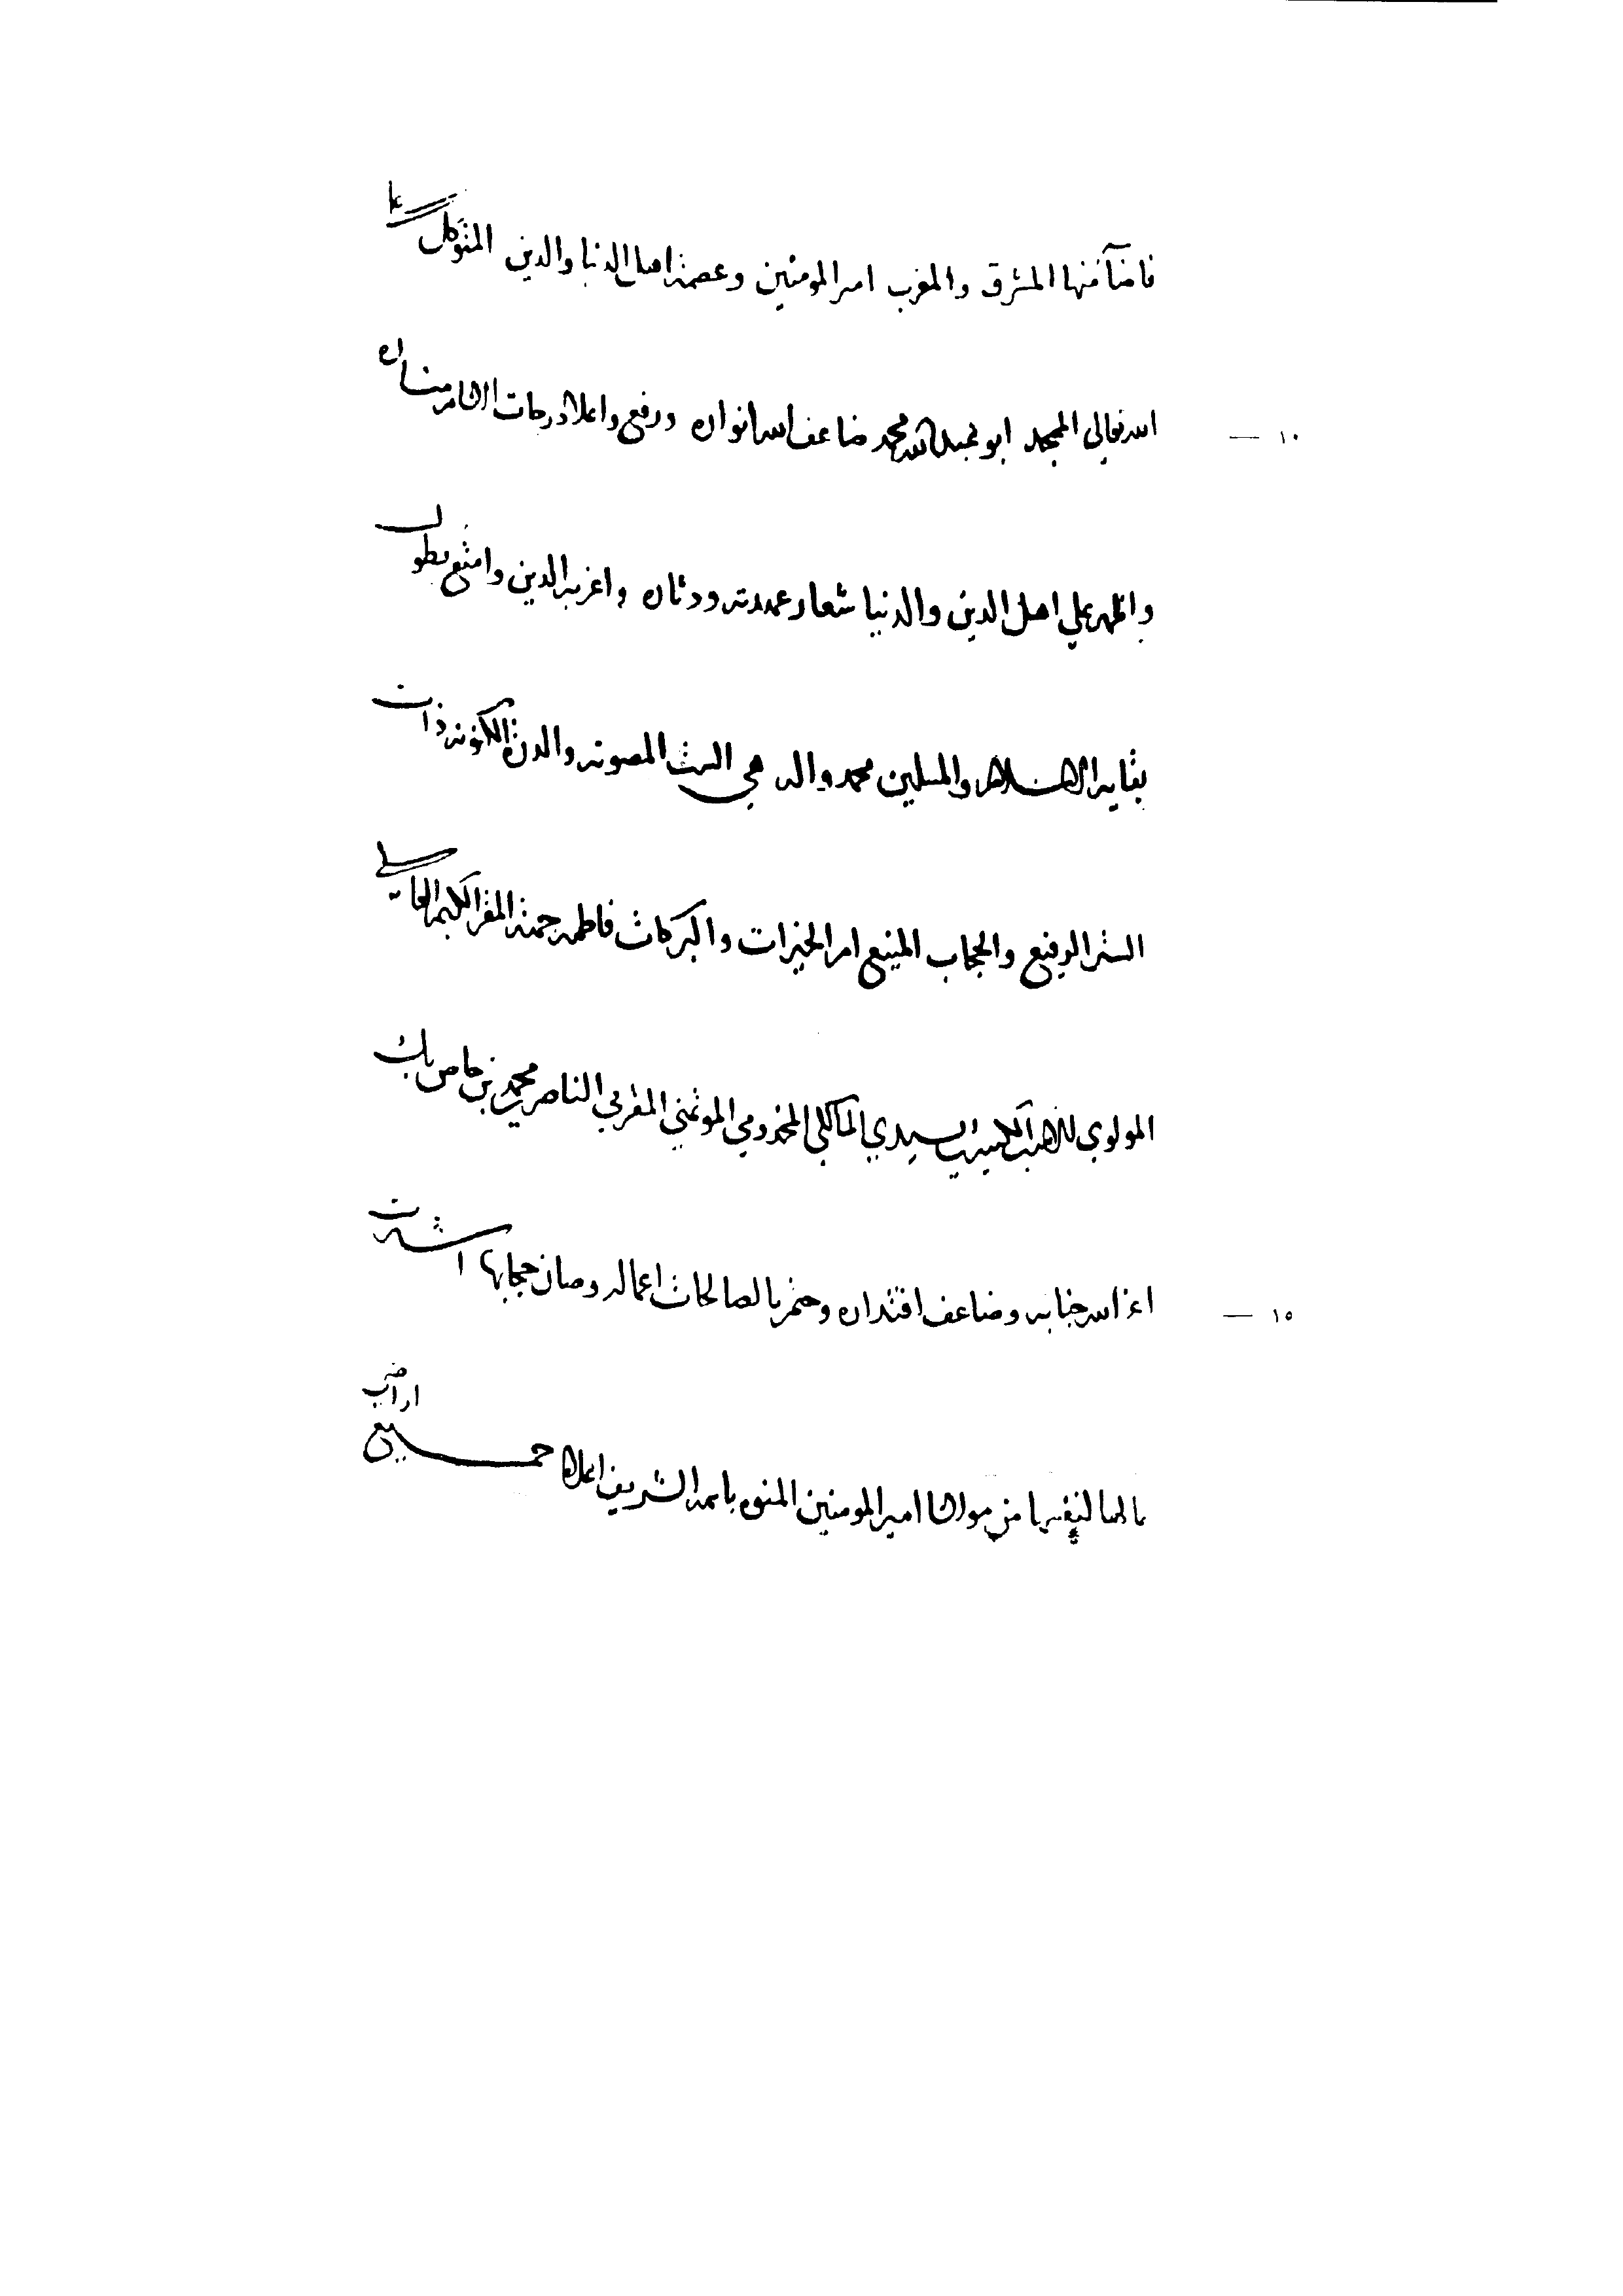 فاضآ منها المشرق والمغرب امير المومنين وعصمة اهل الدنيا والدين المتوكل على
١٠ — الله تعالى الممجد ابو عبد الله محمد ضاعف الله انواره ورفع واعلا درجات الانام مناره
واظهر على اهل الدين والدنيا شعار عهدته ودثاره واعز به الدين وامتع بطول
بقايه الاسلام والمسلمين محمد واله هي الست المصونه والدرة المكنونه ذات
الستر الرفيع والحجاب المنيع ام الخيرات والبركات فاطمه جهة المقر الكريم العالي
المولوي السيدي المالكي المخدومي المغربي الناصر محمد بن خاص بك
١٥ — اعز الله جنابه وضاعف اقتداره وختم بالصالحات اعماله وصان حجابها اشترت
بمالها لنفسها من مولانا امير المومنين المنوه باسمه الشريف اعلاه جميع اراضي